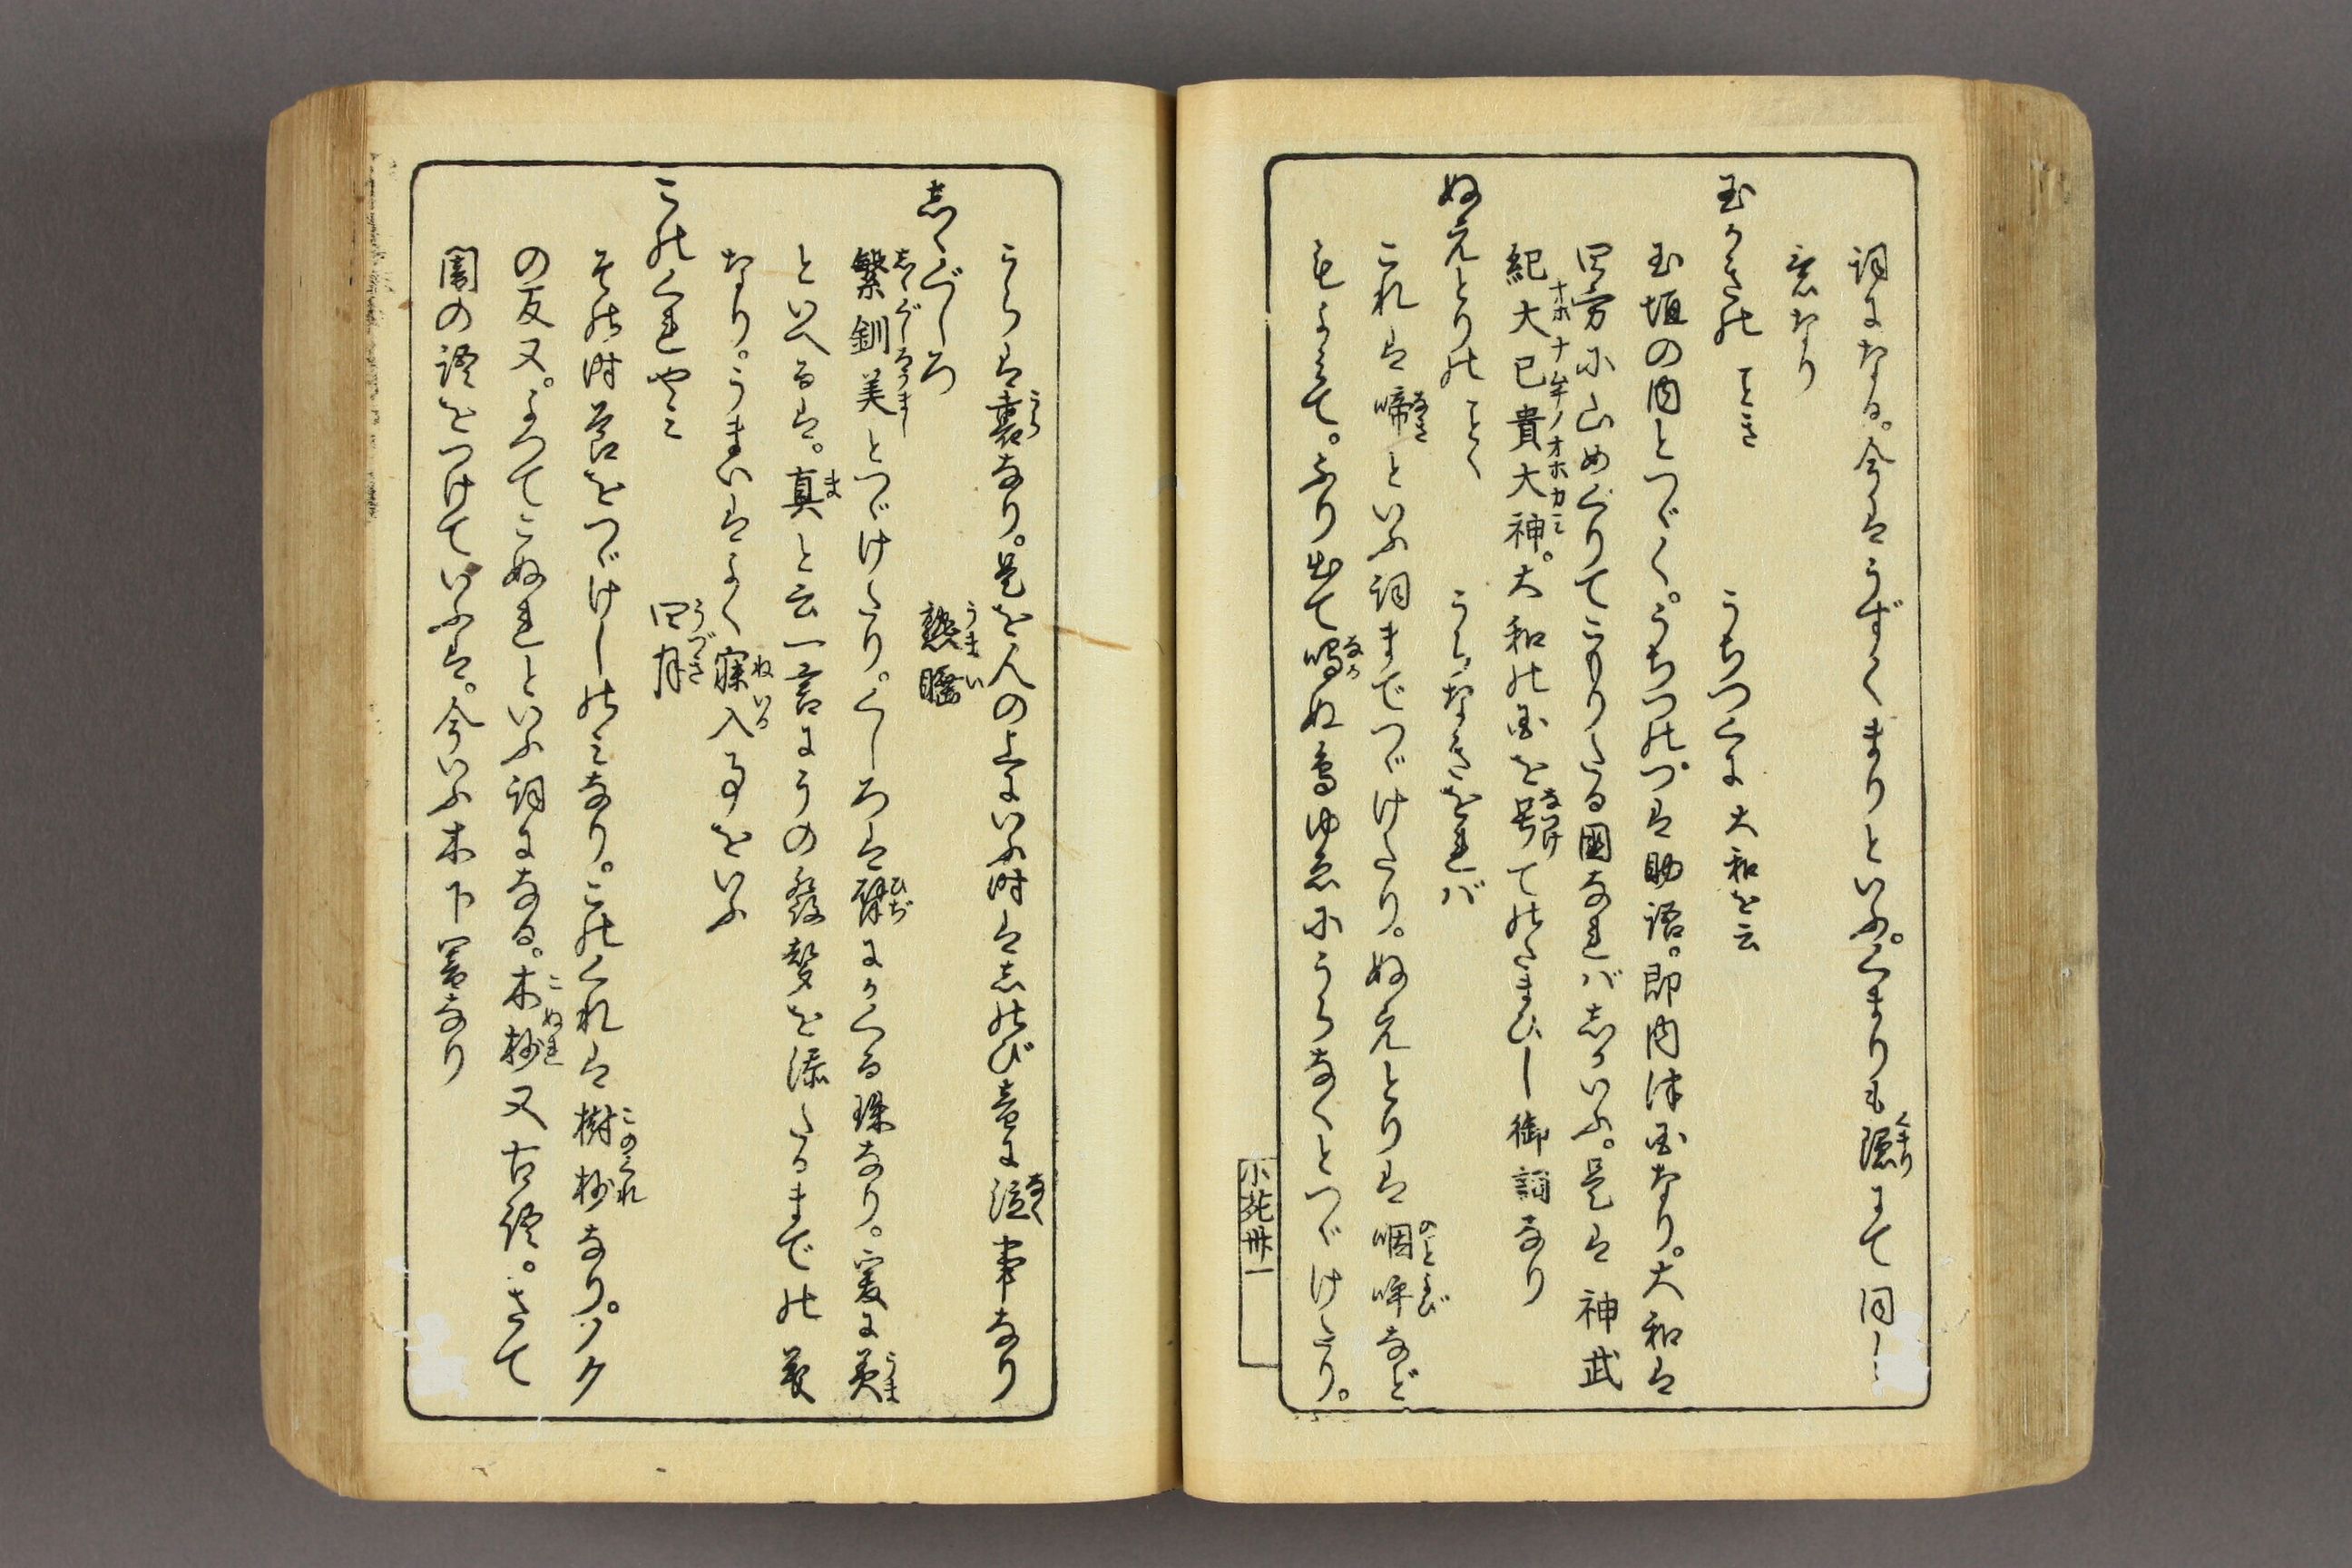 詞になる。今はうずくまりといふ。くまりも隈にて同し
意なり
玉かきの うちつくに 大和を云
玉垣の内とつゞく。うちつのつは助語。即内津国なり。大和は
四方に山めぐりてこもりたる國なればしかいふ。是は神武
紀大已貴大神。大和の国を号てのたまひし御詞なり
ぬえとりの うらなきをれば
これは啼といふ詞までつゞけたり。ぬえとりは咽呼など
もよみて。ふり出て鳴ぬ鳥ゆゑにうらなくとつゞけたり。
小苑冊一
うらは裏なり。是を人の上にいふ時は志のび音に泣事なり
志ゝぐしろ 熟睡
繁釧美とつゞけたり。くしろは臂にかくる珠なり。爰に美
といへるは。真と云一言にうの發聲を添たるまでの義
なり。うまいはよく寐入事をいふ
このくれやみ 四月
その時節をつゞけしのみなり。このくれは樹杪なり。ノク
の反又。よつてこぬれといふ詞になる。木杪又古語。さて
闇の語をつけていふは。今いふ木下闇なり